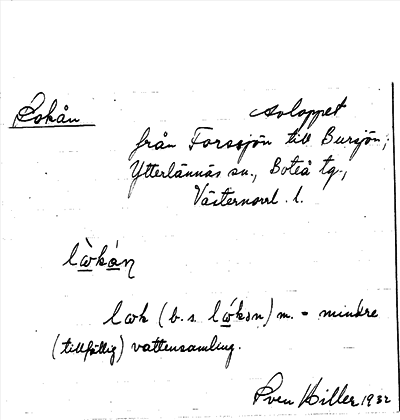 Lokån
Avloppet
från Forssjön till Bursjön,
Ytterlännäs sn., Boteå tg.,
Västernorrl. l.
lɷ̀kán
lɷk (b. s. lɷ́kən) m. = mindre
(tillfällig) vattensamling.
Sven Hiller 1932